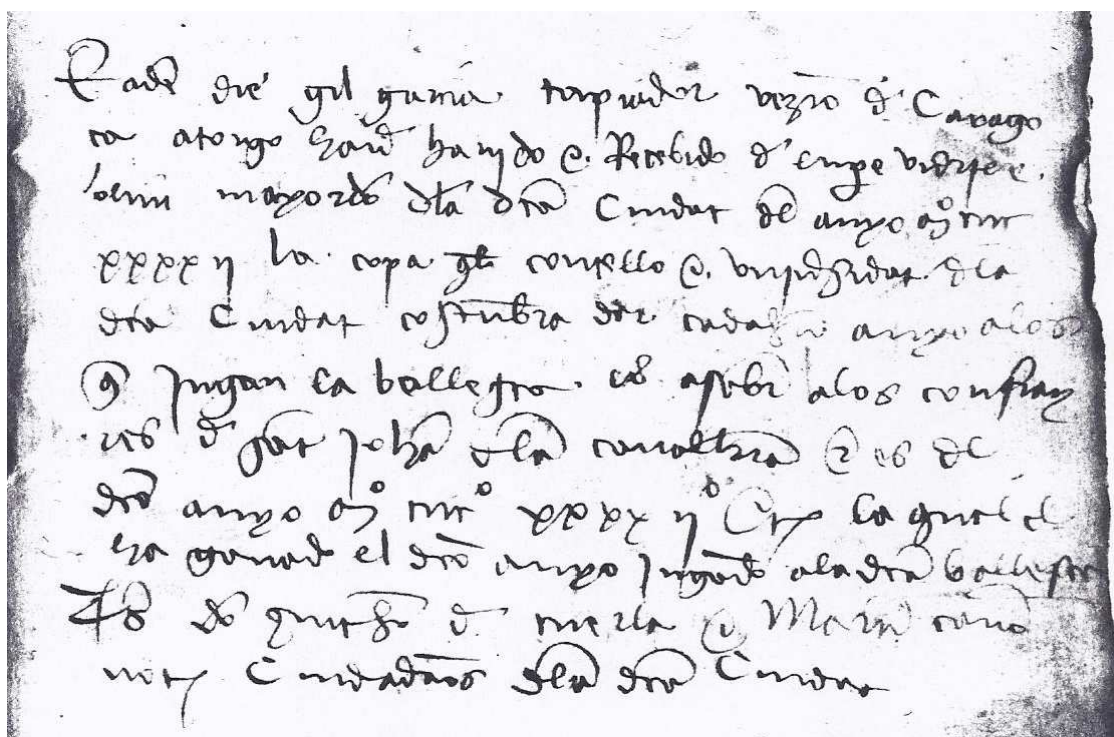 Eadem die gil garcia tapiador vezino d Carago
ca atorgo haver havido e Recebido d
mayordo dla dca Ciudat del anyo mº cccc
xxxxii la copa ql concello e universidat dla
dca Ciudat costumbra dar cada anyo alos
q Jugan la ballesta es asaber alos confray
res d sant Johan dla e es del
dco anyo mº ccccº xxxxiiº la qual el
ha ganado el dco anyo Jugando ala dca ballesta
Ts d e Martin
not Ciudadanos dla dca Ciudat